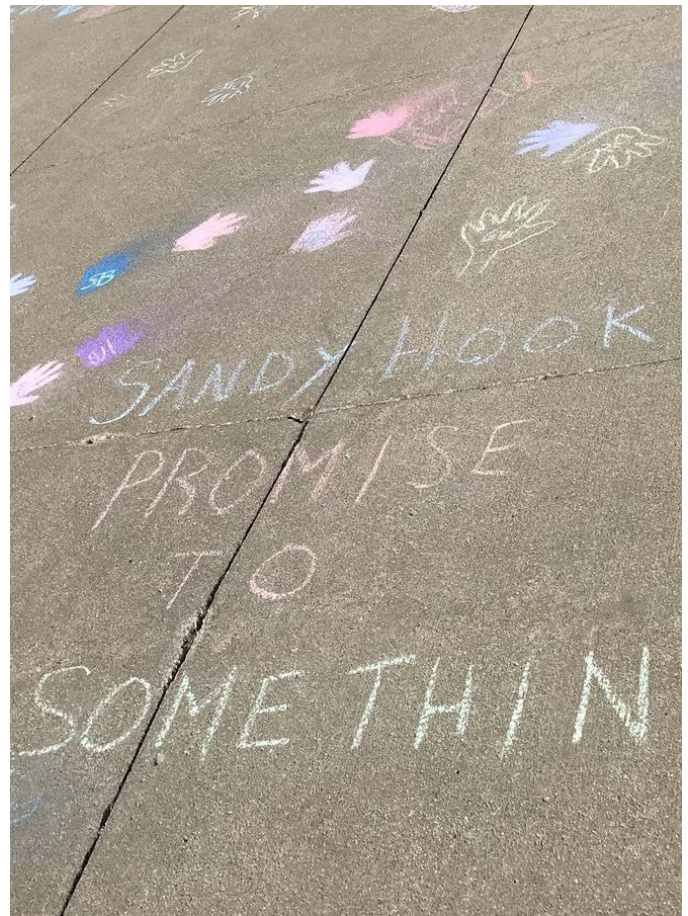 SB
SANDY HOOK
PROMISE
TO
SOMETHIN